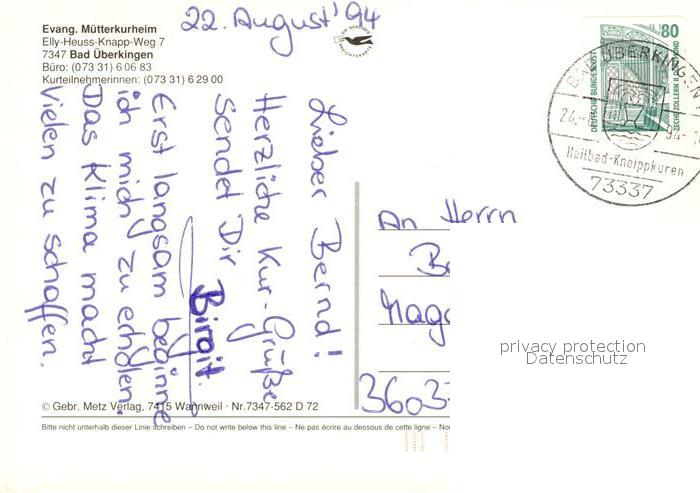 22. August '94
Evang. Mütterkurheim
Elly-Heuss-Knapp-Weg 7
7347 Bad Überkingen
Büro: (073 31) 6 06 83
Kurteilnehmerinnen: (073 31) 6 29 00
Lieber Bernd!
Herzliche Kur-Grüße
sendet Dir
Birgit.
Erst langsam beginne
ich mich zu erholen.
Das Klima macht
Vielen zu schaffen.
80
DEUTSCHE BUNDESPOST
ZECHE ZOLLERN II
BAD ÜBERKINGEN
Heilbad-Kneippkuren
73337
An Herrn
3603
privacy protection
Datenschutz
© Gebr. Metz Verlag, 7415 Wannweil · Nr.7347-562 D 72
Bitte nicht unterhalb dieser Linie schreiben – Do not write below this line – Ne pas écrire au dessous de cette ligne –